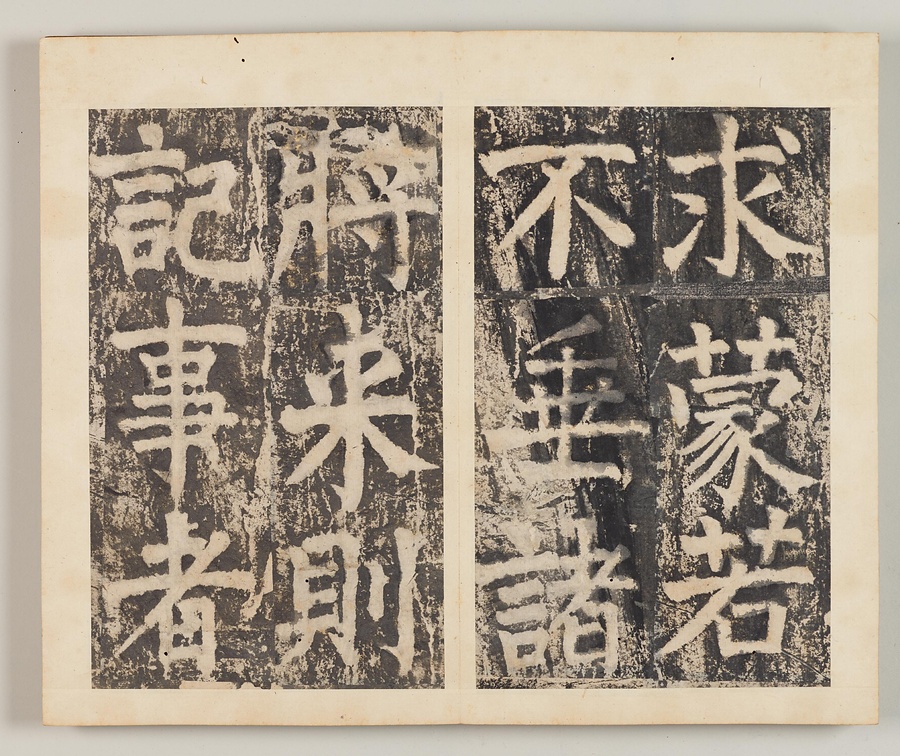 求蒙若
不垂諸
將来則
記事者